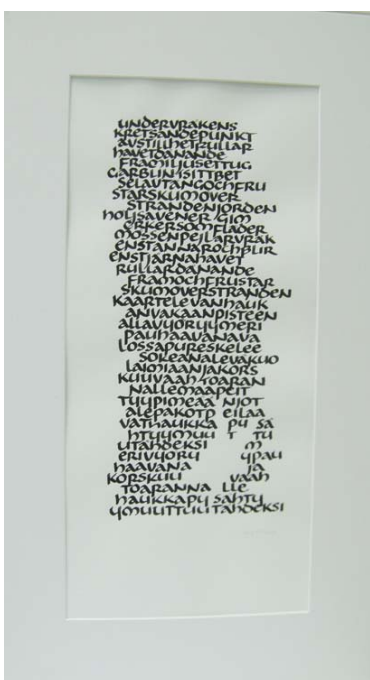 UNDERVRAKENS
KRETSANDEPUNKT
AVSTILLHETRULLAR
HAVETDANANDE
FRAMILJUSETTUG
GARBLINISITTBET
SELAVTANGOCHFRU
STARSKUMOVER
STRANDENJORDEN
HOLJSAVENER GIM
ORKERSOMFLADER
MOSSENPEJLARVRAK
ENSTANNAROCHBLIR
ENSTJARNAHAVET
RULLARDANANDE
FRAMOCHFRUSTAR
SKUMOVERSTRANDEN
KAARTELEVANHAUK
ANVAKAANPISTEEN
ALLAVYORYYMERI
PAUHAAVANAVA
LOSSAPURESKELEE
SOKEANALEVAKUO
LAIMIAANJAKORS
KUUVAAHTOARAN
NALLEMAAPEIT
TYYPIMEAA NJOT
ALEPAKOTP EILAA
VATHAUKKA PY SA
HTYYMUU T TU
UTAHDEKSI M
ERIVYORY YPAU
HAAVANA JA
KORSKUU VAAH
TOARANNA LLE
HAUKKAPY SAHTY
YMUUTTUU TAHDEKSI